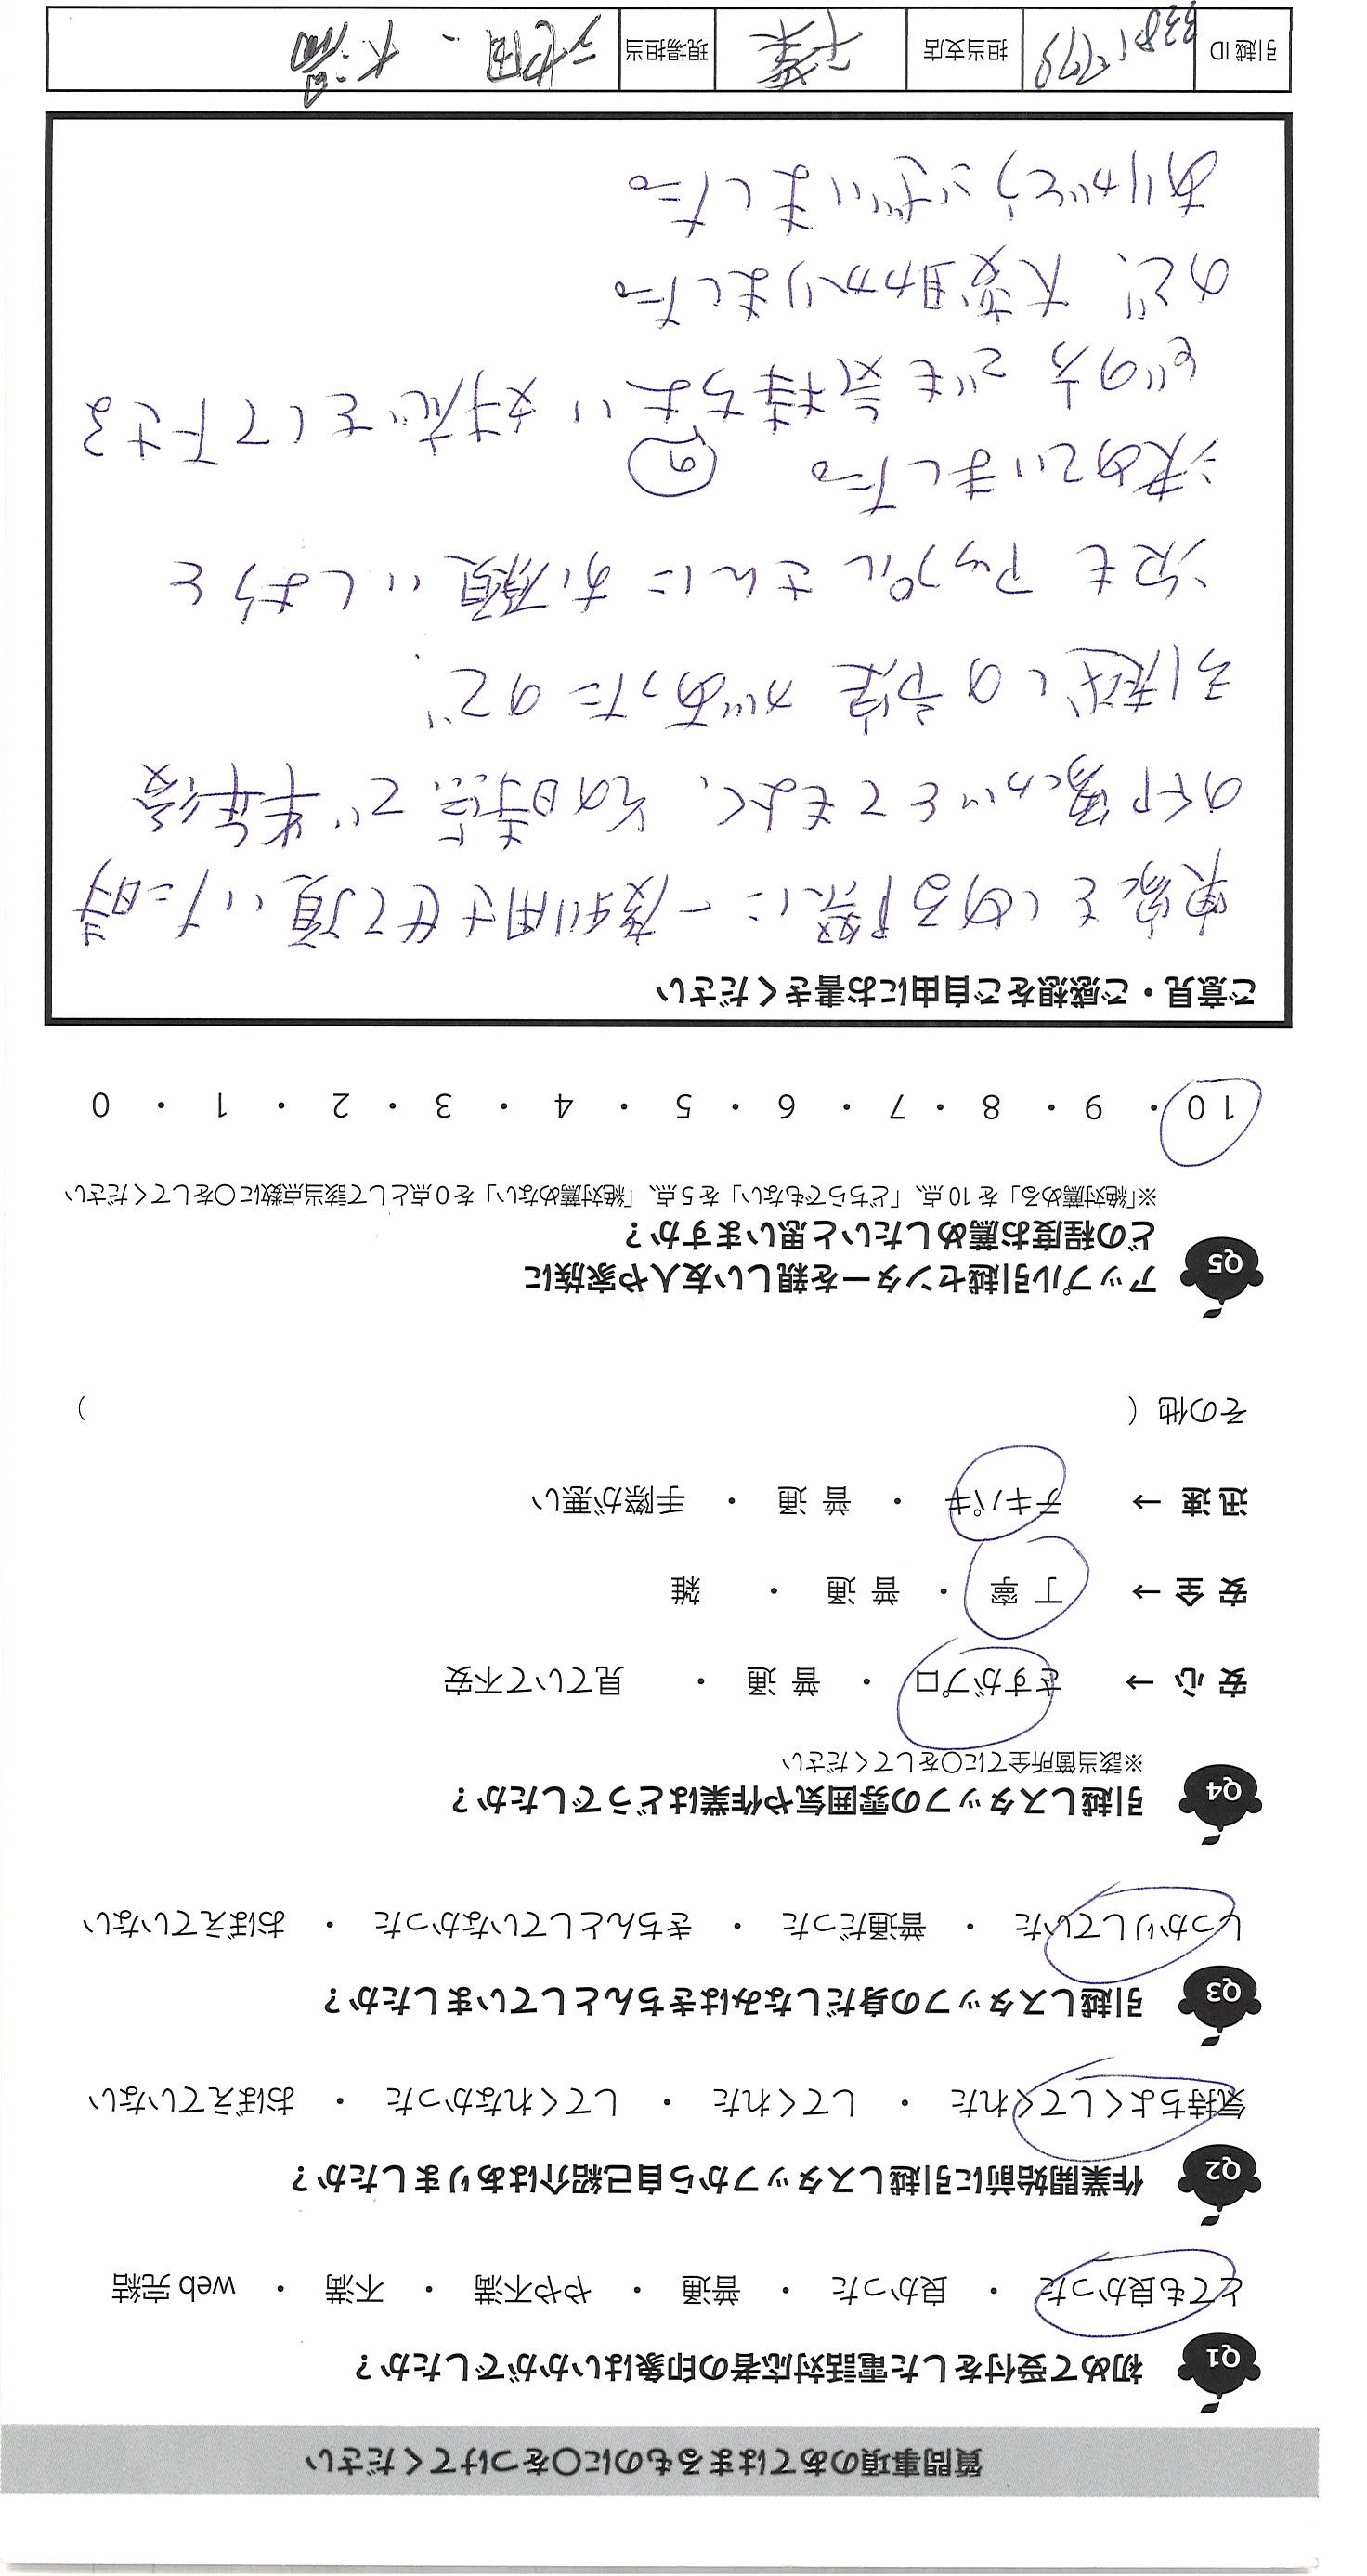 質問事項のあてはまるものに〇をつけてください
Q1 初めて受付をした電話対応者の印象はいかがでしたか？
とても良かった ・ 良かった ・ 普通 ・ やや不満 ・ 不満 ・ web 完結
Q2 作業開始前に引越しスタッフから自己紹介はありましたか？
気持ちよくしてくれた ・ してくれた ・ してくれなかった ・ おぼえていない
Q3 引越しスタッフの身だしなみはきちんとしていましたか？
しっかりしていた ・ 普通だった ・ きちんとしていなかった ・ おぼえていない
Q4 引越しスタッフの雰囲気や作業はどうでしたか？
※該当箇所全てに〇をしてください
安 心 → さすがプロ ・ 普 通 ・ 見ていて不安
安 全 → 丁 寧 ・ 普 通 ・ 雑
迅 速 → テキパキ ・ 普 通 ・ 手際が悪い
その他（ ）
Q5 アップル引越センターを親しい友人や家族に
どの程度お薦めしたいと思いますか？
※「絶対薦める」を 10 点、「どちらでもない」を 5 点、「絶対薦めない」を 0 点として該当点数に〇をしてください
10 ・ 9 ・ 8 ・ 7 ・ 6 ・ 5 ・ 4 ・ 3 ・ 2 ・ 1 ・ 0
ご意見・ご感想をご自由にお書きください
実家をしめる際に一度利用させて頂いた時
の印象がとてもよく、その時点で半年後
引越しの予定があったので、
次もアップルさんにお願いしようと
決めていました。
どの方でも気持ちよい対応をして下さる
の
ので、大変助かりました。
ありがとうございました。
引越 ID 担当支店 千葉 現場担当